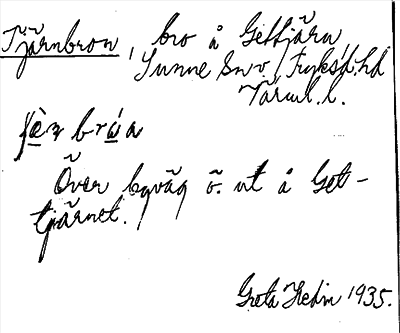 Tjärnbron, bro å Gettjärn
Sunne sn o Fryksd. hd
Värml. l.
bro̲a
Över byväg ö. ut å Get-
tjärnet.
Greta Hedin 1935.